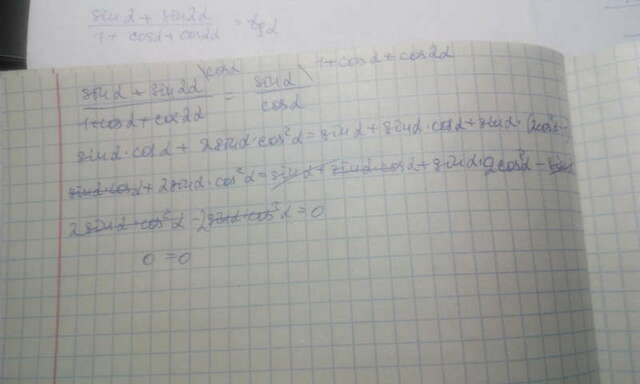 sin α + sin 2α / 1 + cos α + cos 2α = tg α
sin α + sin 2α \cos α / 1 + cos α + cos 2α = sin α \1 + cos α + cos 2α / cos α
sin α · cos α + 2 sin α · cos² α = sin α + sin α · cos α + sin α · (2cos² α -
sin α · cos α + 2 sin α · cos² α = sin α + sin α · cos α + sin α · 2cos² α - sin α
2 sin α · cos² α - 2 sin α · cos² α = 0
0 = 0